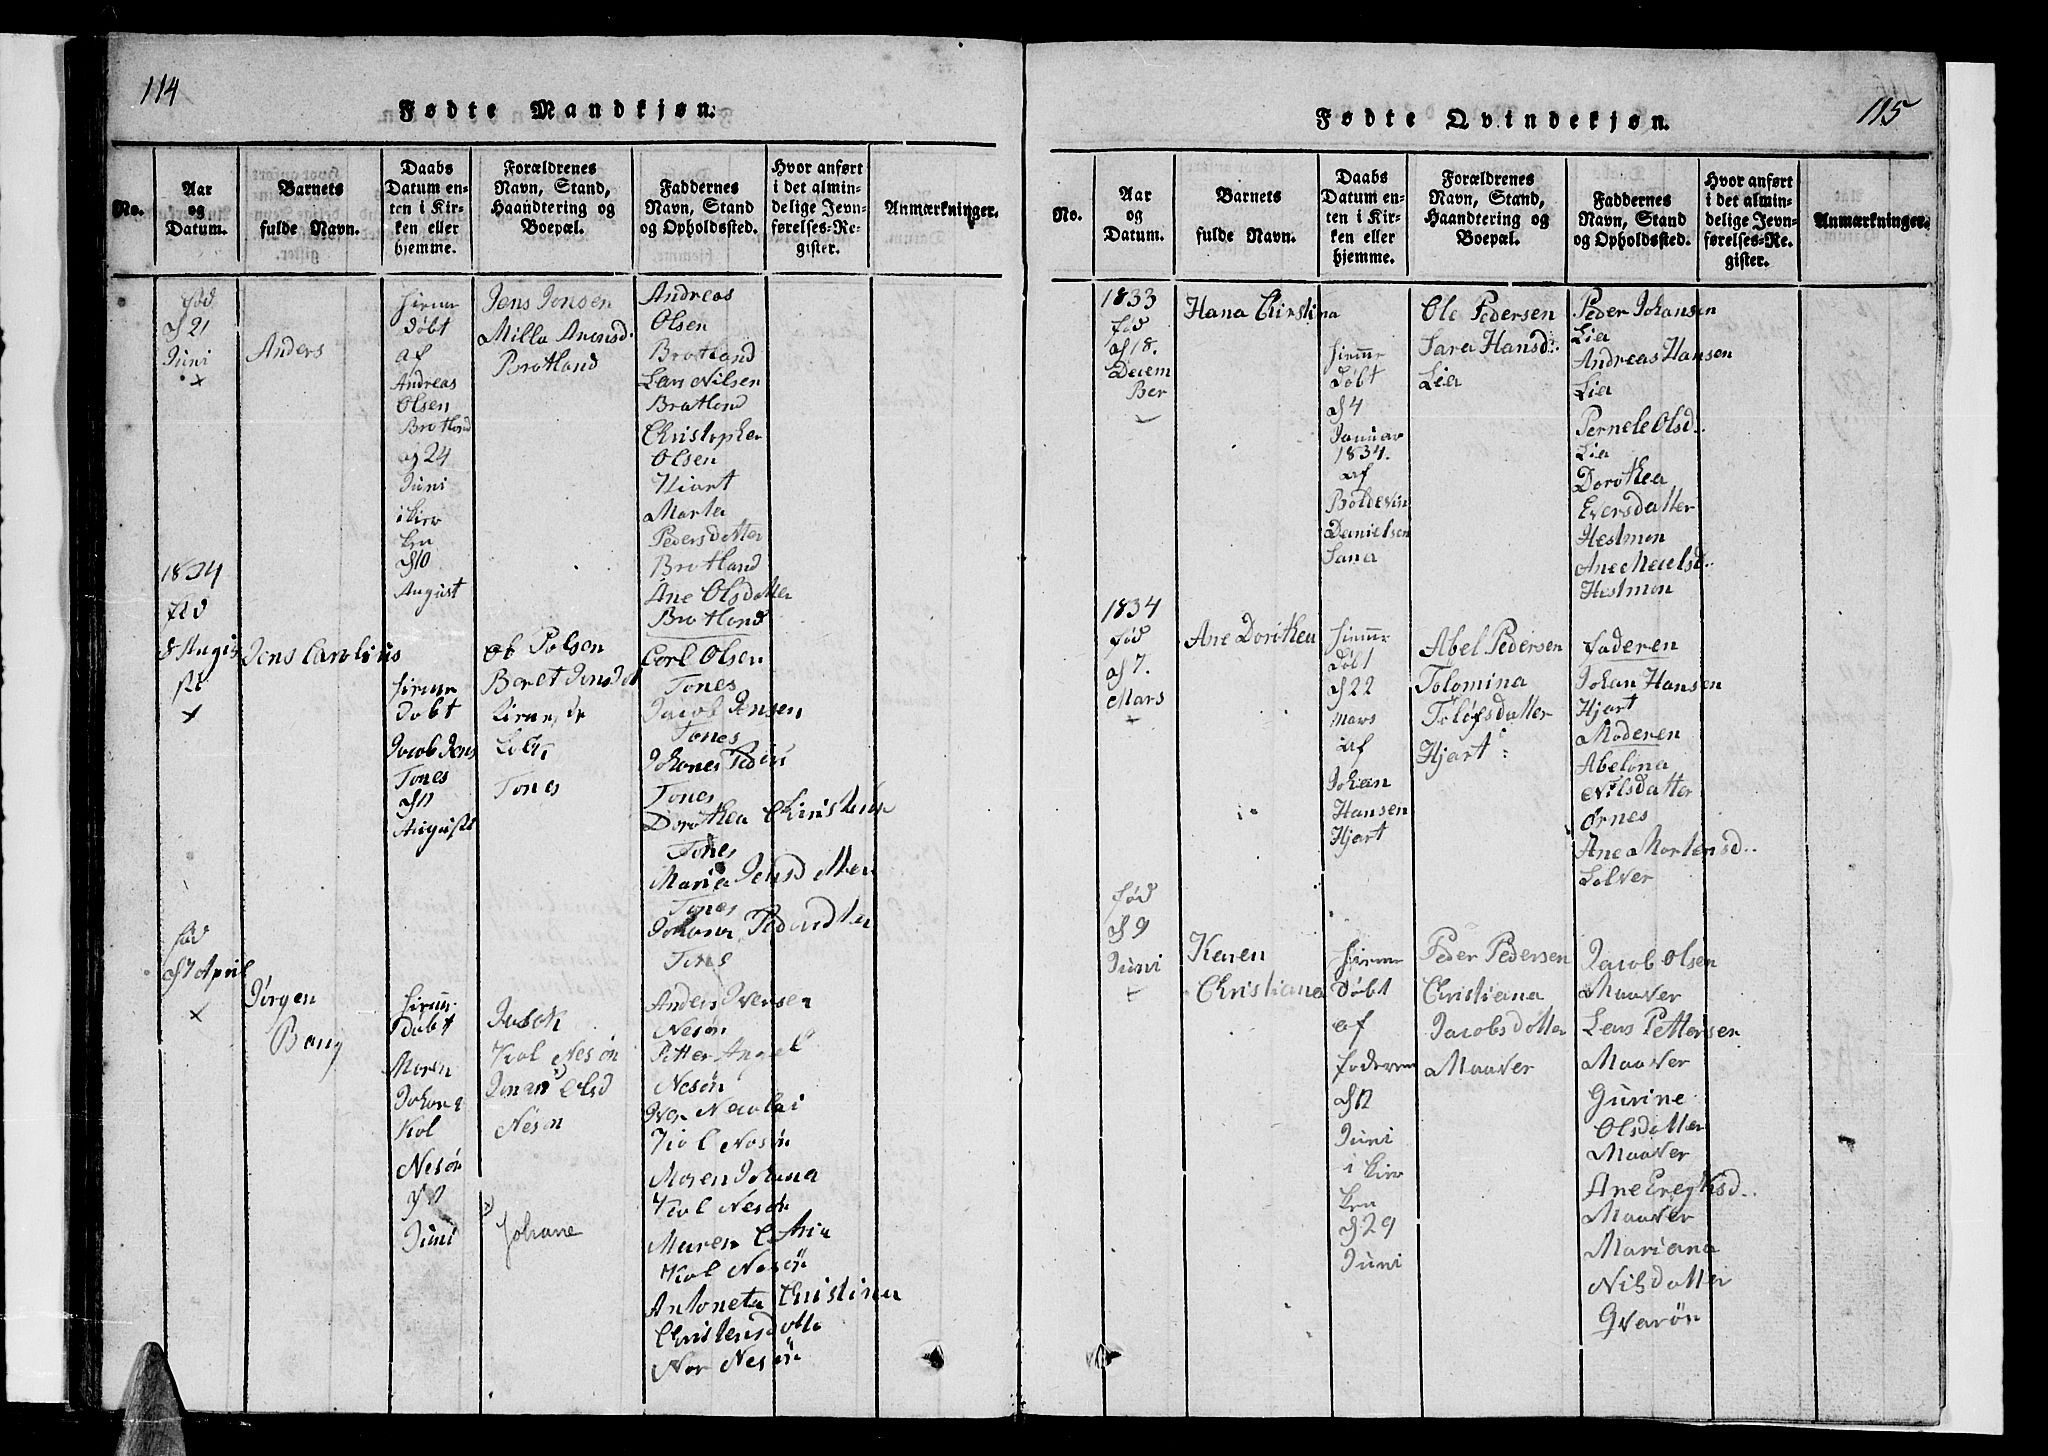 114
Fødte Mandkjøn.
No.
Aar
og
Datum.
Barnets
fulde Navn.
Daabs
Datum en-
ten i Kir-
ken eller
hjemme.
Forældrenes
Navn, Stand,
Haandtering og
Boepæl.
Faddernes
Navn, Stand
og Opholdssted.
Hvor anført
i det almin-
delige Jevn-
førelses-Re-
gister.
Anmærkninger.
fød
d 21
Juni
+
Anders
døbt
af
Andreas
Olsen
Brotlond
d 24
Juni
i kir
ken
d 10
August
Jens Jonsen
Milla
Brotland
Andreas
Olsen
Brotlond
Lars Nilsen
Bratlond
Christopher
Olsen
Hiart
Marta
Pedersdatter
Brotland
Ane Olsdatter
Brotlond
1834
fød
8 Augu
st
+
Jens Carolius
dobt
Jacob Jens
Tones
d 11
August
Ob Polsen
Beret Jensd
Tones
Carl Olsen
Tones
Jacob Jensen
Tones
Johones
Tones
Dorothea Christens
Tones
Maria Jensdotter
Tones
Johana
Tones
fød
d 7 April
+
Jørgen
Bang
døbt
Moren
Johana
Kol
Nesøn
Juni
Jusok
Kol Nesøn
Jonan Olsd
Nesøn
Johane
Anders Iversen
Nesøn
Petter Angel
Nesøn
Iver Neolai
Kiol Nesøn
Moren Johana
Kiol Nesøn
Maren
Kol Nesøn
Antoneta Christina
Christensdotte
Nor Nesøn
115
Fødte Qvindekjøn.
No.
Aar
og
Datum.
Barnets
fulde Navn.
Daabs
Datum en-
ten i Kir-
ken eller
hjemme.
Forældrenes
Navn, Stand,
Haandtering og
Boepæl.
Faddernes
Navn, Stand
og Opholdssted.
Hvor anført
i det almin-
delige Jevn-
førelses-Re-
gister.
Anmærkninger.
1833
fød
d 18.
Decem
Ber
Hana Chirstina
hiemr
døbt
d 4
Januar
1834.
af
Boldevin
Danielsen
Sana
Ole Pedersen
Sara Hansd..
Lia
Peder Johansen
Lia
Andreas Hansen
Lia
Pernele Olsd..
Lia
Dorothea
Eversdatter
Hestmon
Ane Neelsd..
Hestmon
1834
fød
d 7.
Mars
+
Ane Dorothea
hiemr
døbt
d 22
mars
af
Johan
Hansen
Hjart
Abel Pedersen
Tolomina
Toløfsdatter
Hjart
faderen
Johan Hansen
Hjart
Moderen
Abelona
Nilsdatter
Ørnes
Ane Mortensd..
Lølver
fød
d 9
Juni
+
Karen
Christiana
hiemr
døbt
af
foderen
d 12
Juni
i kir
ken
d 29
Juni
Peder Pedersen
Christiana
Jacobsdotter
Maaver
Jacob Olsen
Maaver
Lars Pettersen
Maaver
Gurine
Olsdatter
Maaver
Ane Eregksd..
Maaver
Mariana
Nilsdotter
Gvarøn